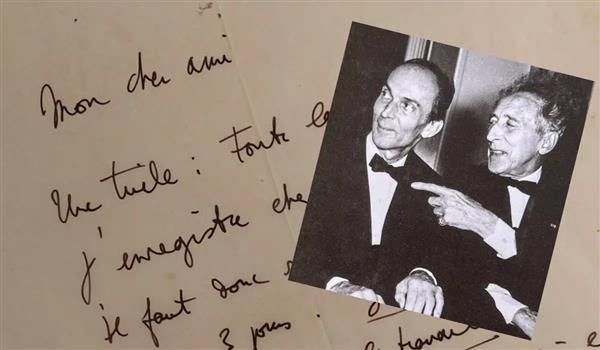 Mon cher ami
Une tuile : Toute la
J'enregistre che
Il faut donc
3 jours.
le travail